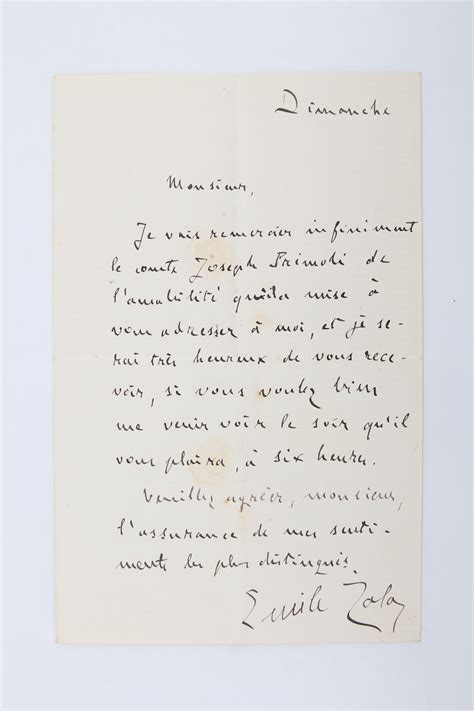 Dimanche
Monsieur,
Je vais remercier infiniment
le comte Joseph Primoli de
l'amabilité qu'il a mise à
vous adresser à moi, et je se-
rai très heureux de vous rece-
voir, si vous voulez bien
me venir voir le soir qu'il
vous plaira, à six heures.
Veuillez agréer, monsieur,
l'assurance de mes senti-
ments les plus distingués.
Emile Zola